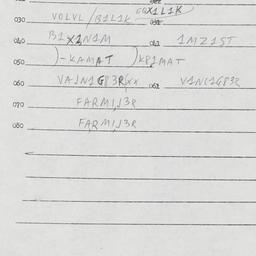 030 VOLVL / B1L1K CGX1L1K
040 B1X1N1M 041 1MZ1ST
050 )-KAMAT )KP1MAT
060 VAJN1GP3RXX 061 V1NC1GP3R
070 FARM1J3R
080 FARM1J3R